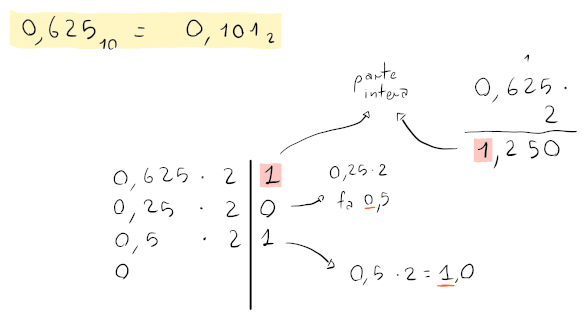 0,625₁₀ = 0,101₂
parte
intera
1
0,625 ·
2
1,250
0,625 · 2 | 1
0,25 · 2 | 0
0,5 · 2 | 1
0
0,25 · 2
fa 0,5
0,5 · 2 = 1,0